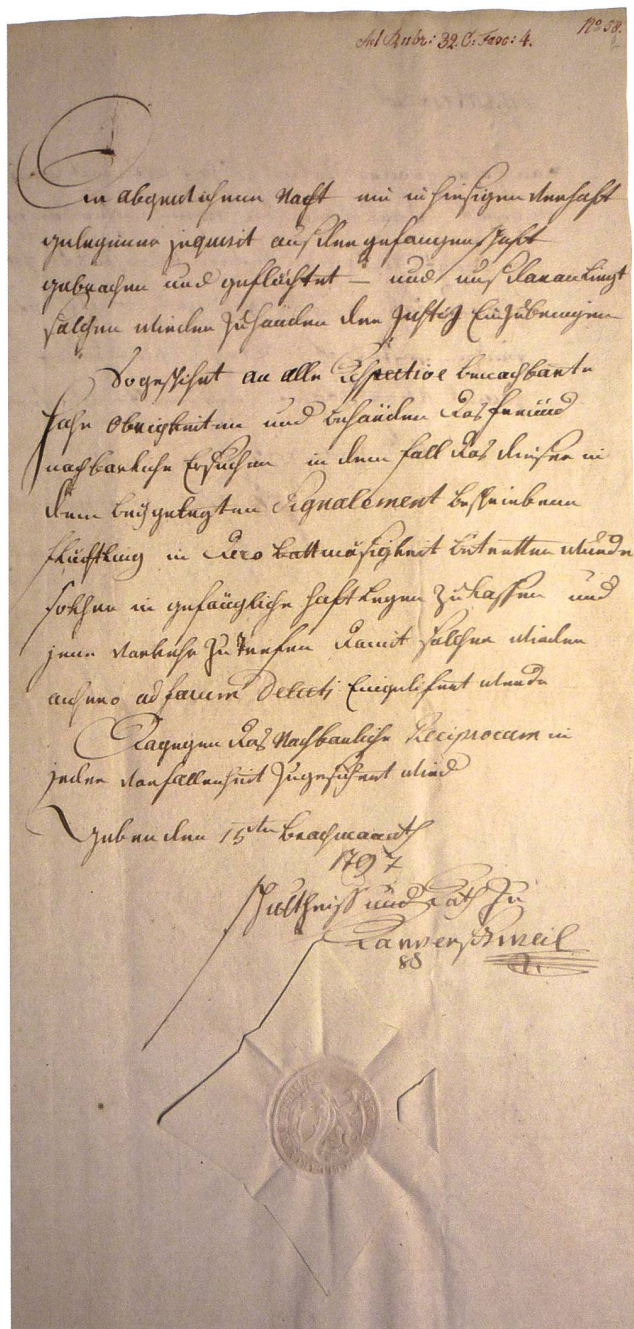 Ad Rubr: 32. C: Fasc: 4.
No 58.
Da abgewichene Nacht ein in hiesigem Verhaft
gelegener Inquisit aus der gefangenschaft
gebrochen und geflüchtet – und uns daran Liegt
solchen wieder zuhanden der Justiz Einzubringen
So geschihet an alle Respective benachbarte
Hohe Obrigkeiten und behörden das freünd
nachbarliche Ersuchen in dem fall das dieser in
dem beÿgelegten Signalement beschriebene
flüchtling in Dero bottmäsigkeit betretten wurde
solchen in gefängliche haft Legen zu Lassen und
jene Vorkehr zu trefen damit solcher wieder
anhero ad forum Delicti Eingelifert werde
Dagegen das Nachbarliche Reciprocum in
jeder Vorfallenheit zugesichert wird
Geben den 15ten brachmonath
1797
Schultheiss und Rath zu
Rapperschweil